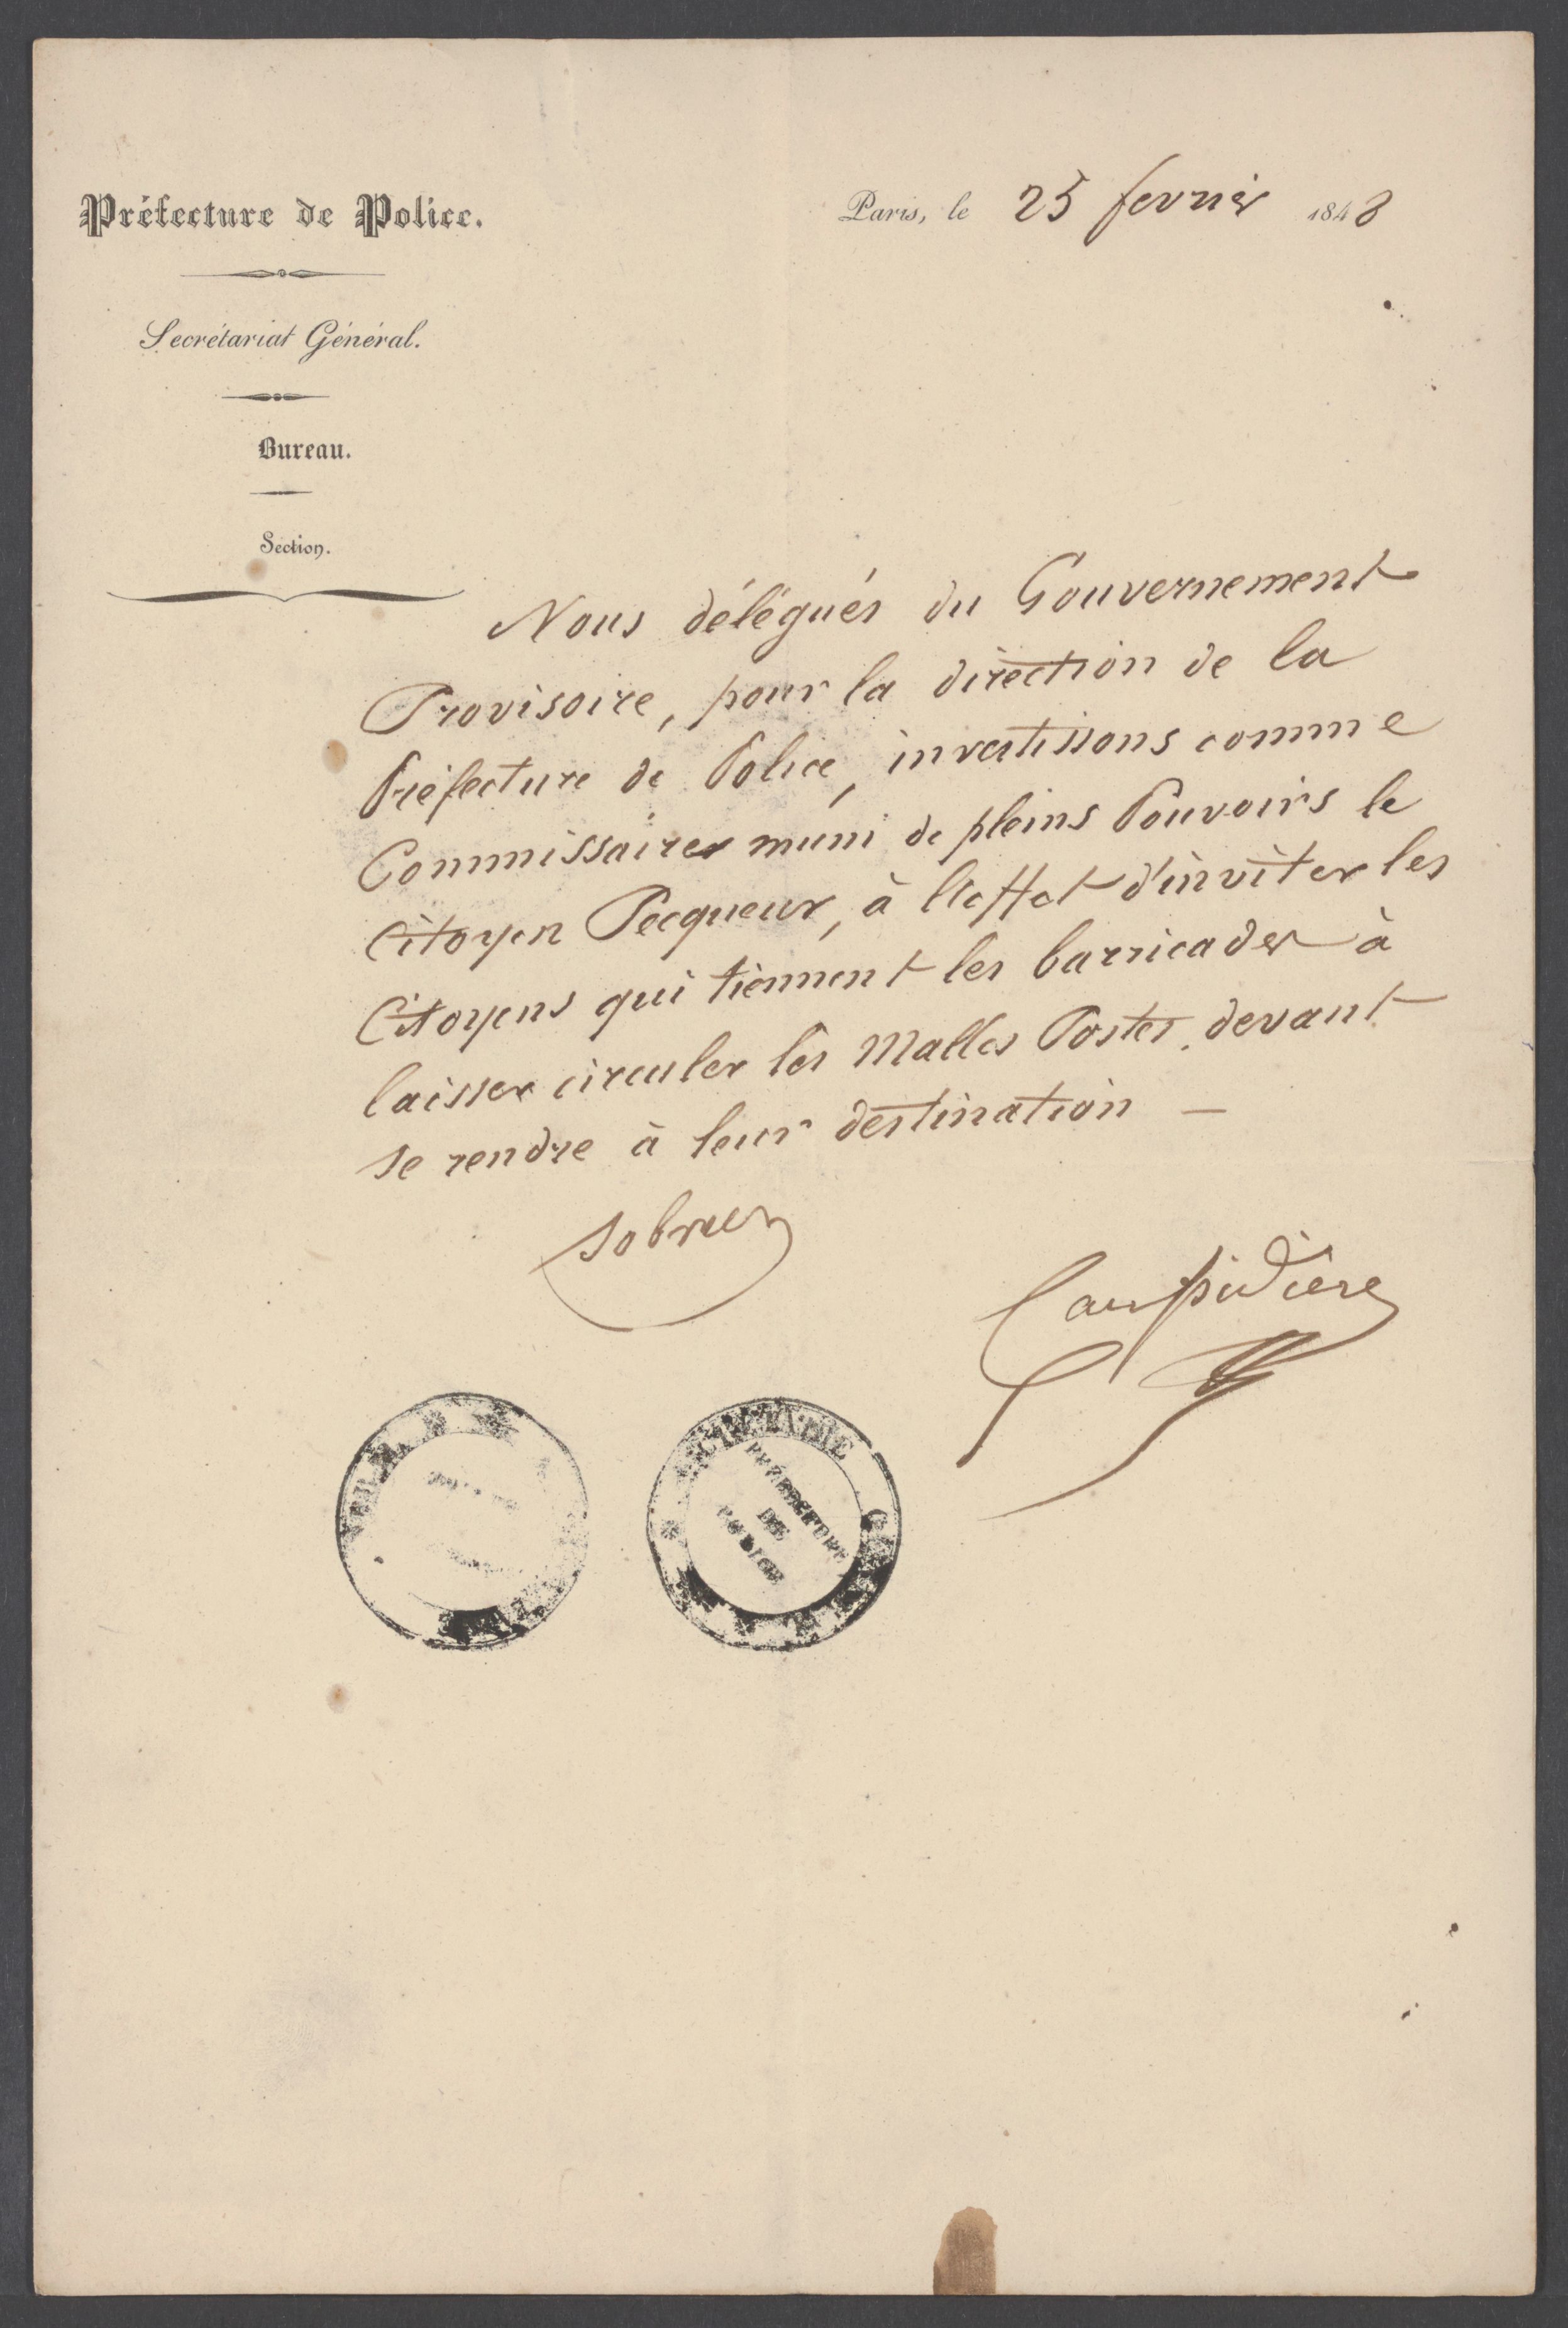 Préfecture de Police.
Paris, le 25 fevrier 1848
Secrétariat Général.
Bureau.
Section.
Nous délégués du Gouvernement
Provisoire, pour la direction de la
Préfecture de Police, investissons comme
Commissaires muni de pleins Pouvoirs le
Citoyen Pecqueur, à l'effet d'inviter les
Citoyens qui tiennent les barricades à
laisser circuler les Malles Postes, devant
se rendre à leur destination —
Sobrier
Caussidière
SECRÉTAIRE GÉNÉRAL
PRÉFECTURE
DE
POLICE